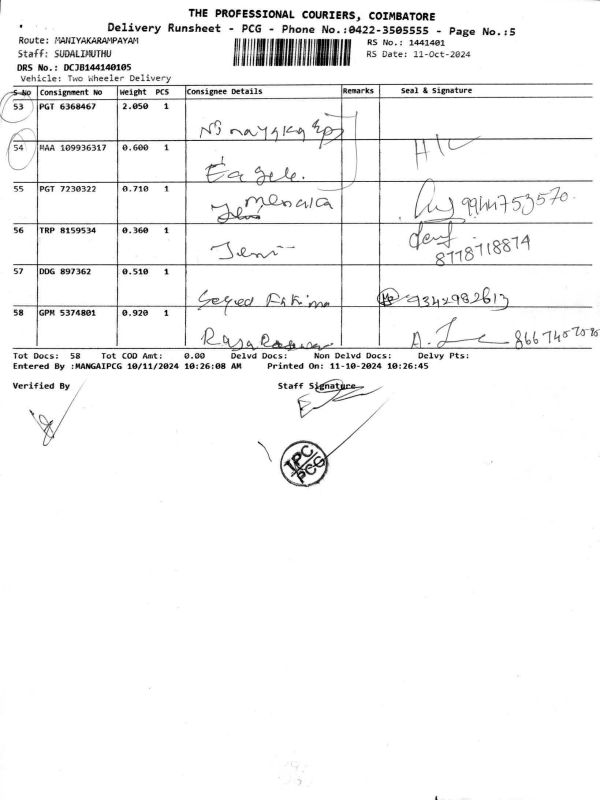 THE PROFESSIONAL COURIERS, COIMBATORE
Delivery Runsheet - PCG - Phone No.:0422-3505555 - Page No.:5
Route: MANIYAKARAMPAYAM
RS No.: 1441401
Staff: SUDALIMUTHU
RS Date: 11-Oct-2024
DRS No.: DCJB144140105
Vehicle: Two Wheeler Delivery
S No Consignment No Weight PCS Consignee Details Remarks Seal & Signature
53 PGT 6368467 2.050 1
54 MAA 109936317 0.600 1 H/C
Eagele.
55 PGT 7230322 0.710 1
Menaka 9944753570.
56 TRP 8159534 0.360 1
Jeni 8778718874
57 DDG 897362 0.510 1
Seyed Fathima 9342982613
58 GPM 5374801 0.920 1
A.
Tot Docs: 58 Tot COD Amt: 0.00 Delvd Docs: Non Delvd Docs: Delvy Pts:
Entered By :MANGAIPCG 10/11/2024 10:26:08 AM Printed On: 11-10-2024 10:26:45
Verified By Staff Signature
TPC
PCG